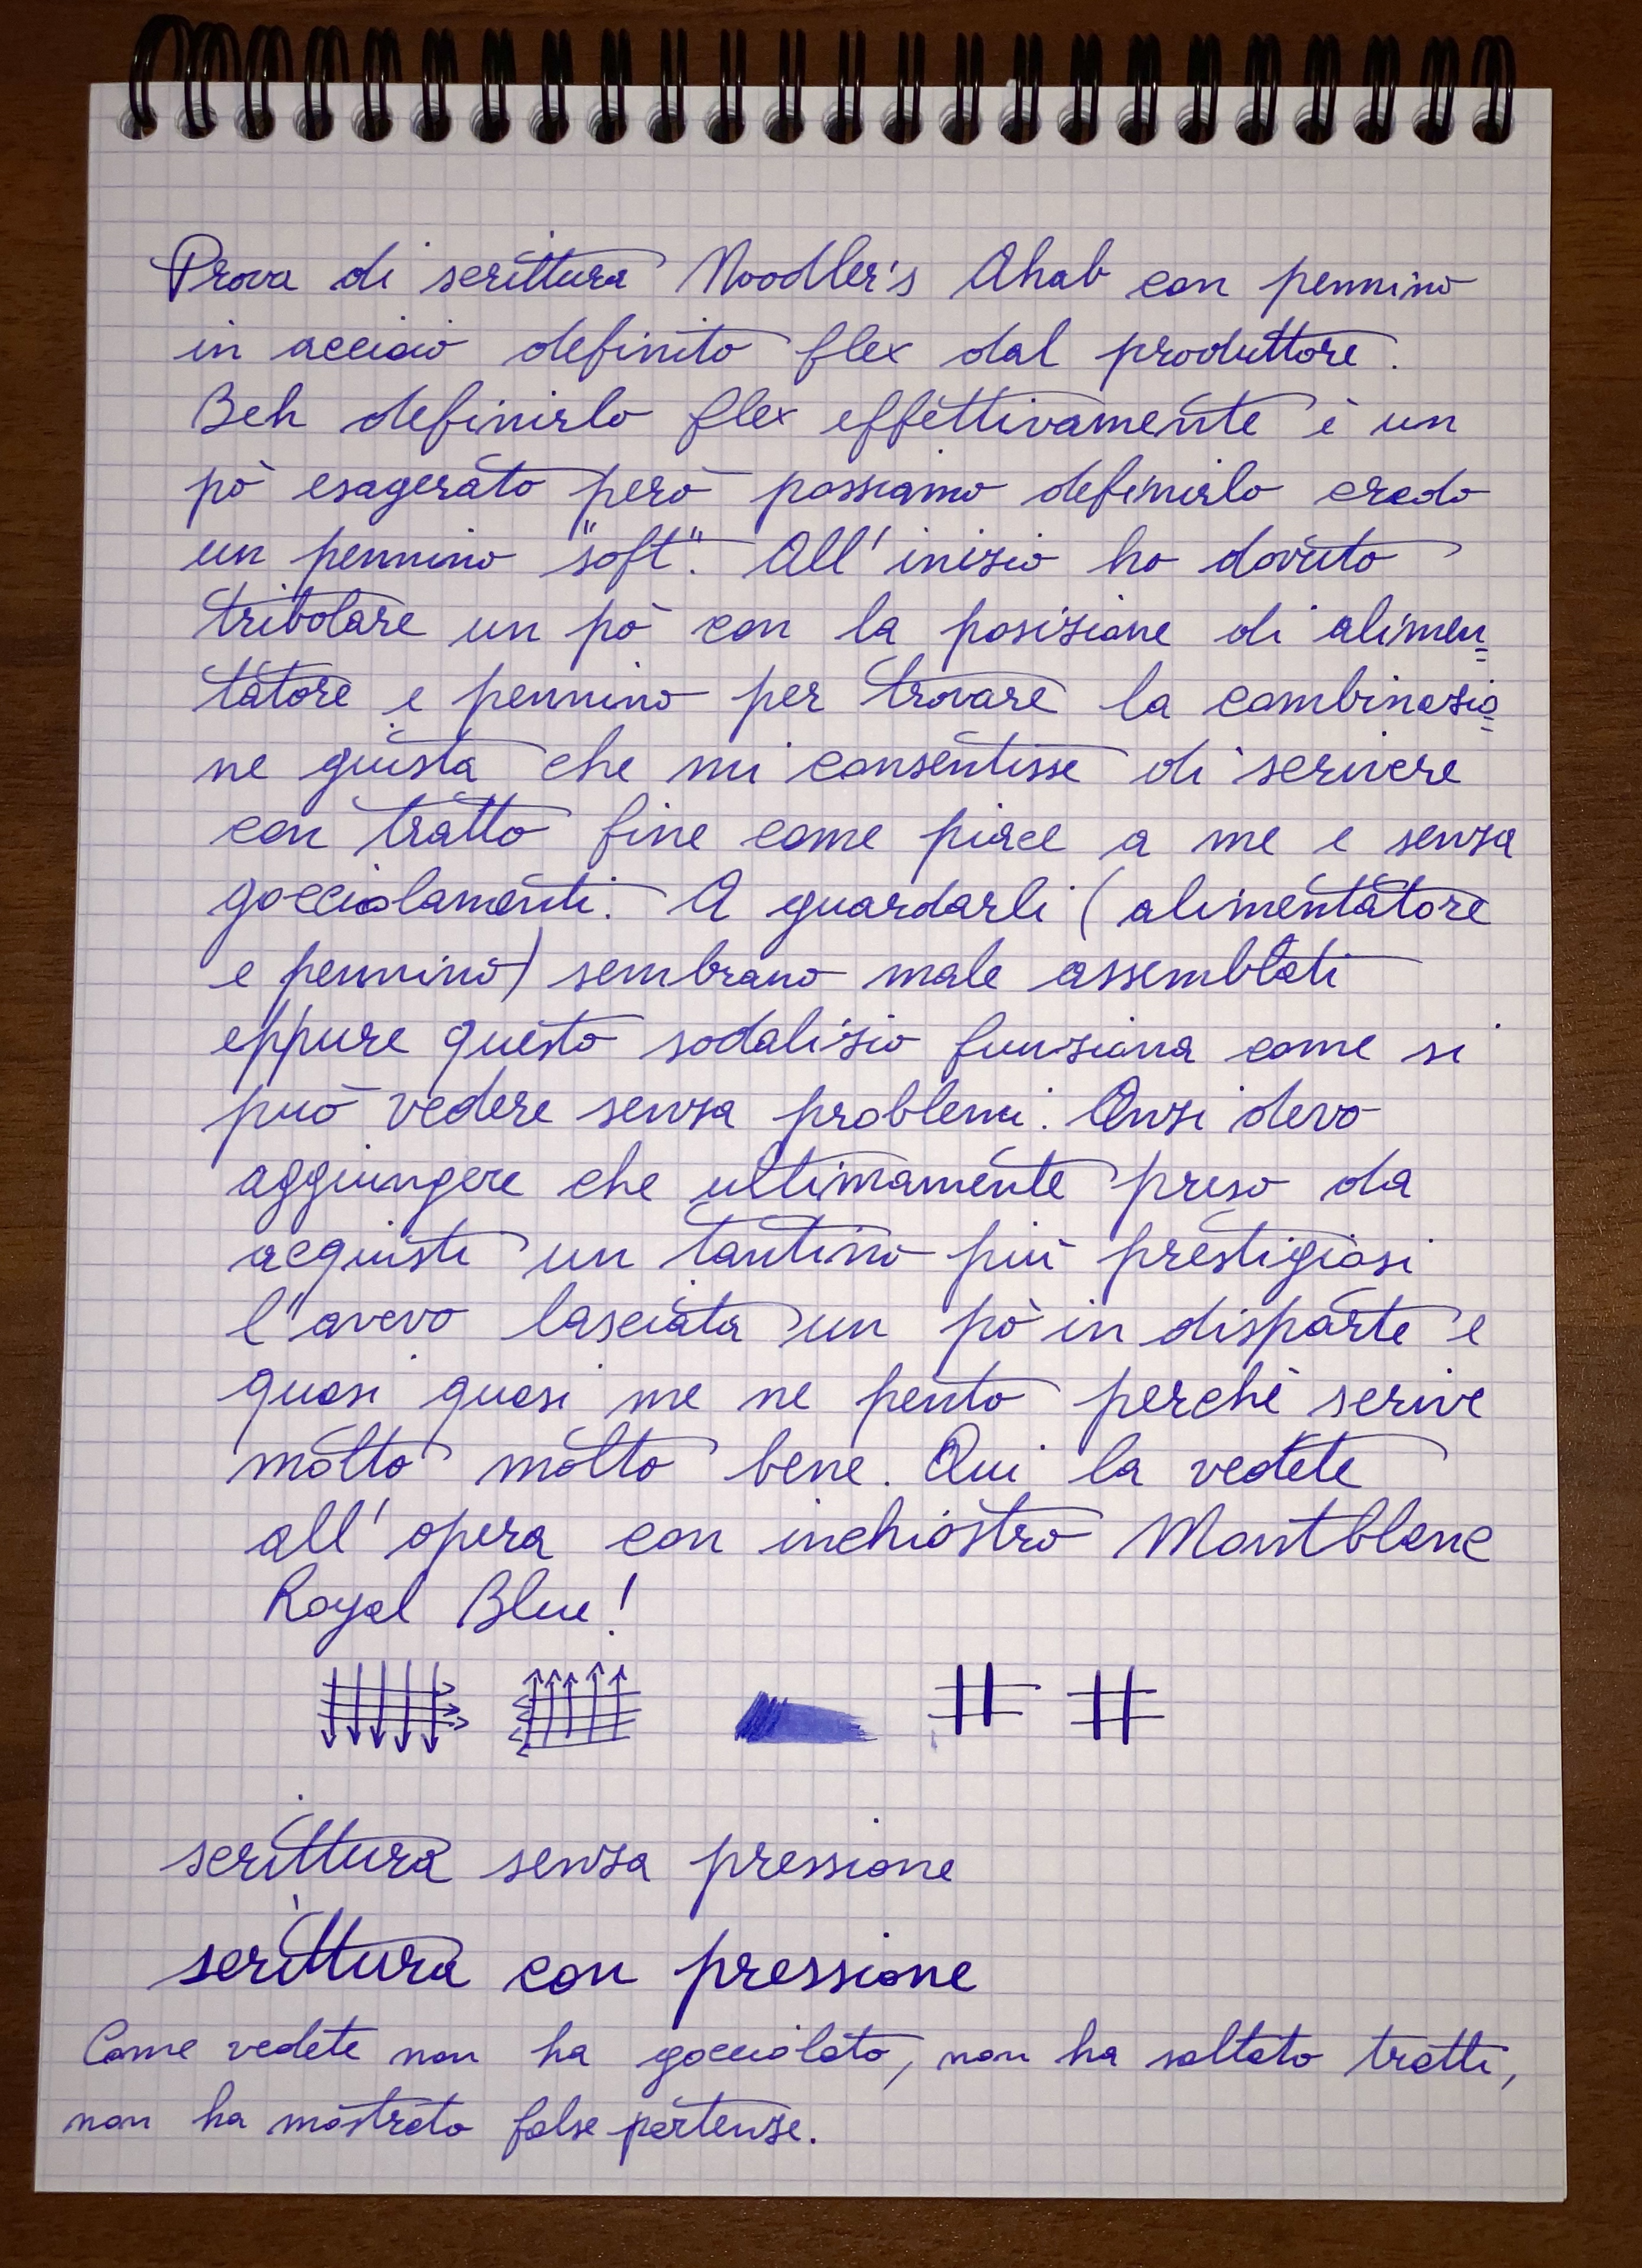 Prova di scrittura Noodler's Ahab con pennino
in acciaio definito flex dal produttore.
Beh definirlo flex effettivamente è un
pò esagerato però possiamo definirlo credo
un pennino "soft". All'inizio ho dovuto
tribolare un pò con la posizione di alimen=
tatore e pennino per trovare la combinazio=
ne giusta che mi consentisse di scrivere
con tratto fine come piace a me e senza
gocciolamenti. A guardarli (alimentatore
e pennino) sembrano male assemblati
eppure questo sodalizio funziona come si
può vedere senza problemi. Anzi devo
aggiungere che ultimamente preso da
acquisti un tantino più prestigiosi
l'avevo lasciata un pò in disparte e
quasi quasi me ne pento perchè scrive
molto molto bene. Qui la vedete
all'opera con inchiostro Montblanc
Royal Blue!
scrittura senza pressione
scrittura con pressione
Come vedete non ha gocciolato, non ha saltato tratti,
non ha mostrato false partenze.